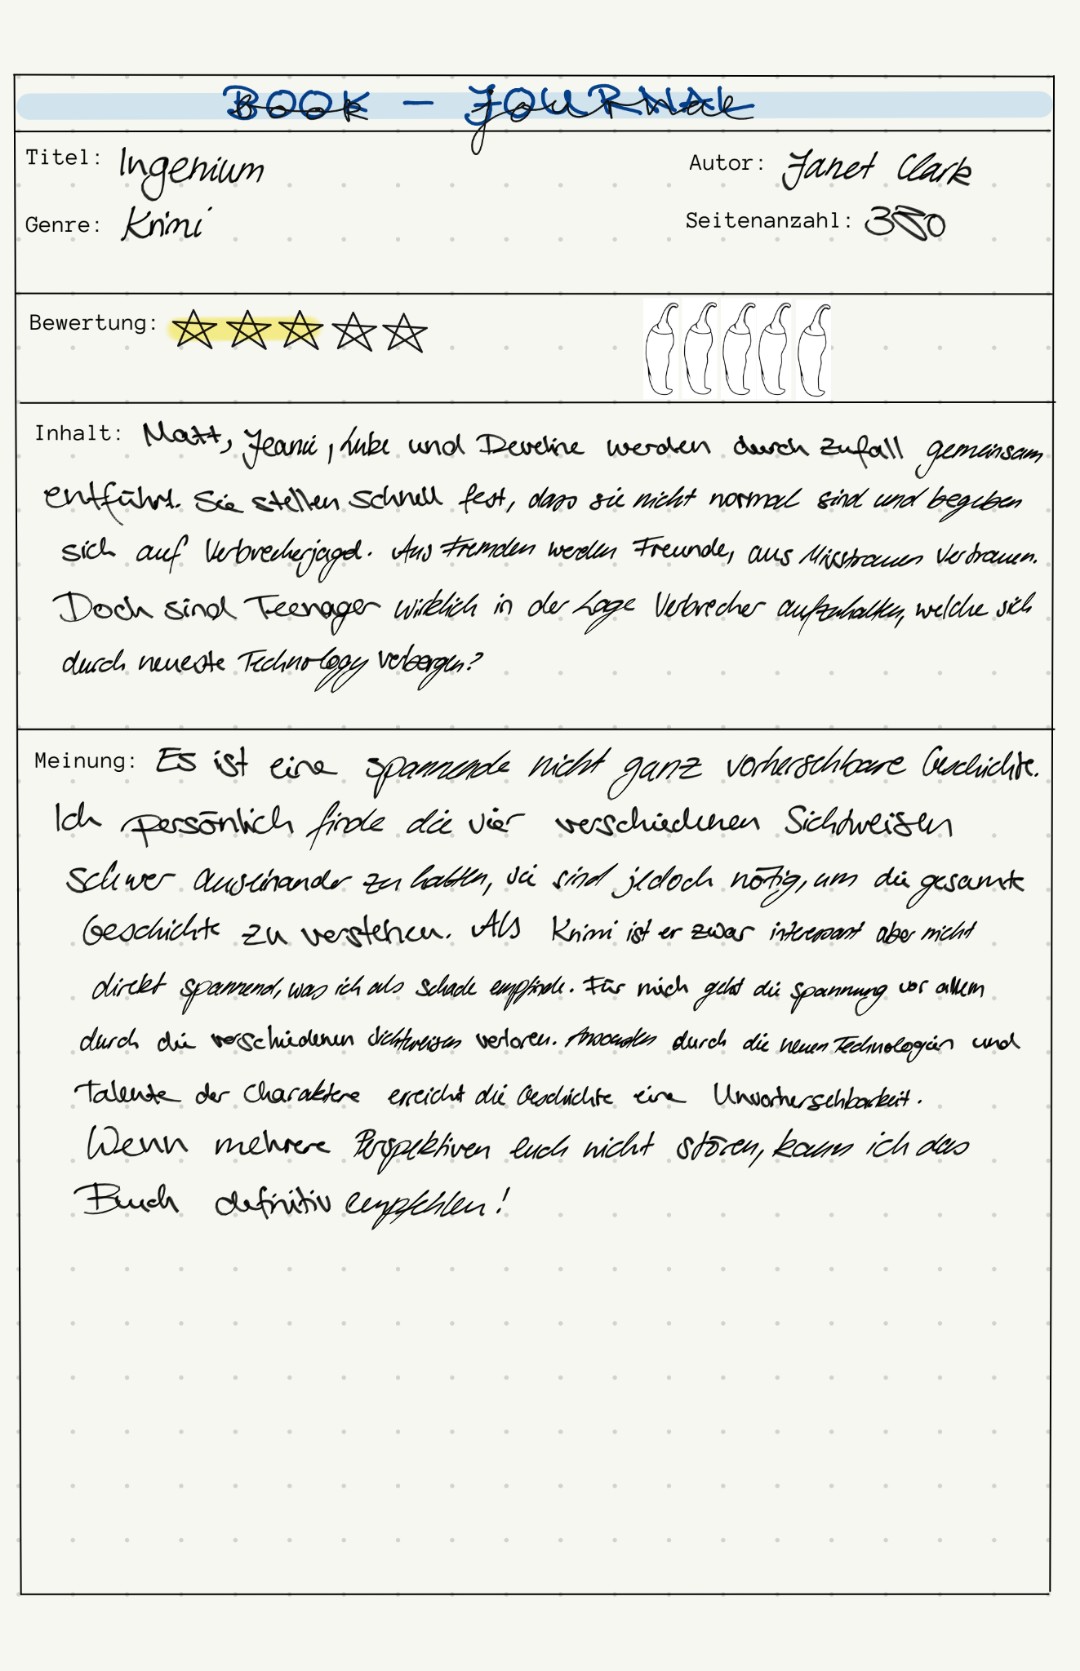 BOOK - JOURNAL
Titel: Ingenium
Autor: Janet Clark
Genre: Krimi
Seitenanzahl: 380
Bewertung:
Inhalt: Matt, Jeanie, Luke und Develine werden durch Zufall gemeinsam
entführt. Sie stellen schnell fest, dass sie nicht normal sind und begeben
sich auf Verbrecherjagd. Aus Fremden werden Freunde, aus Misstrauen Vertrauen.
Doch sind Teenager wirklich in der Lage Verbrecher aufzuhalten, welche sich
durch neueste Technology verbergen?
Meinung: Es ist eine spannende nicht ganz vorherschbare Geschichte.
Ich persönlich finde die vier verschiedenen Sichtweisen
schwer auseinander zu halten, sie sind jedoch nötig, um die gesamte
Geschichte zu verstehen. Als Krimi ist er zwar interessant aber nicht
direkt spannend, was ich als Schade empfinde. Für mich geht die Spannung vor allem
durch die verschiedenen Sichtweisen verloren. Ansonsten durch die neuen Technologien und
Talente der Charaktere erreicht die Geschichte eine Unvorherschbarkeit.
Wenn mehrere Perspektiven euch nicht stören, kann ich das
Buch definitiv empfehlen!